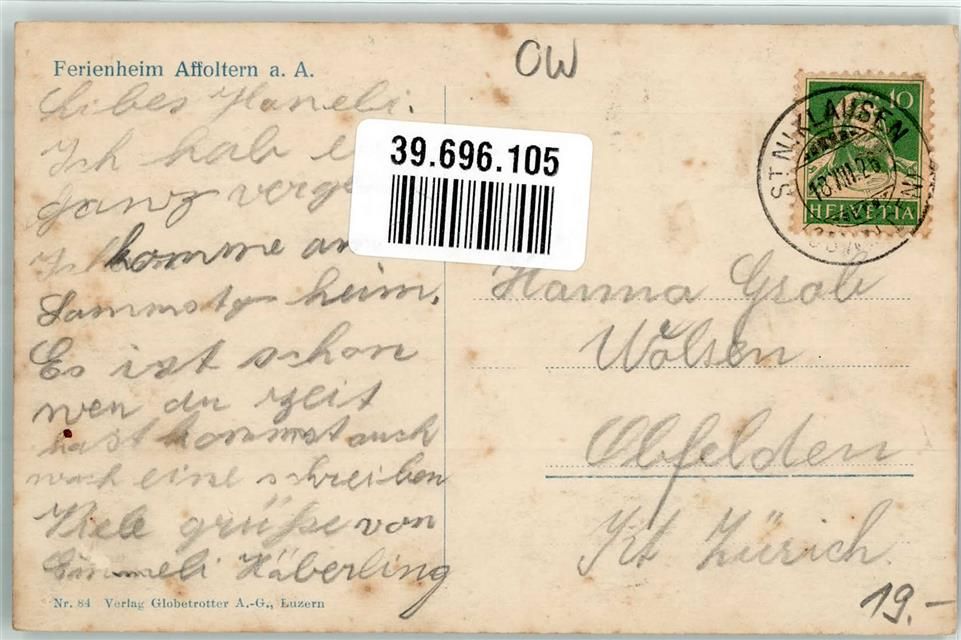 Ferienheim Affoltern a. A.
OW
Libes Haneli.
Ich hab
ganz
Ich komme am
Sammstg heim.
Es ist schon
wen du zeit
hast kommst auch
noch eine schreiben
Viele grüße von
Emmeli Häberling
Nr. 84 Verlag Globetrotter A.-G., Luzern
39.696.105
10
HELVETIA
ST. NIKLAUSEN
Hanna Grob
Wolsen
Obfelden
Kt Zürich.
19.-